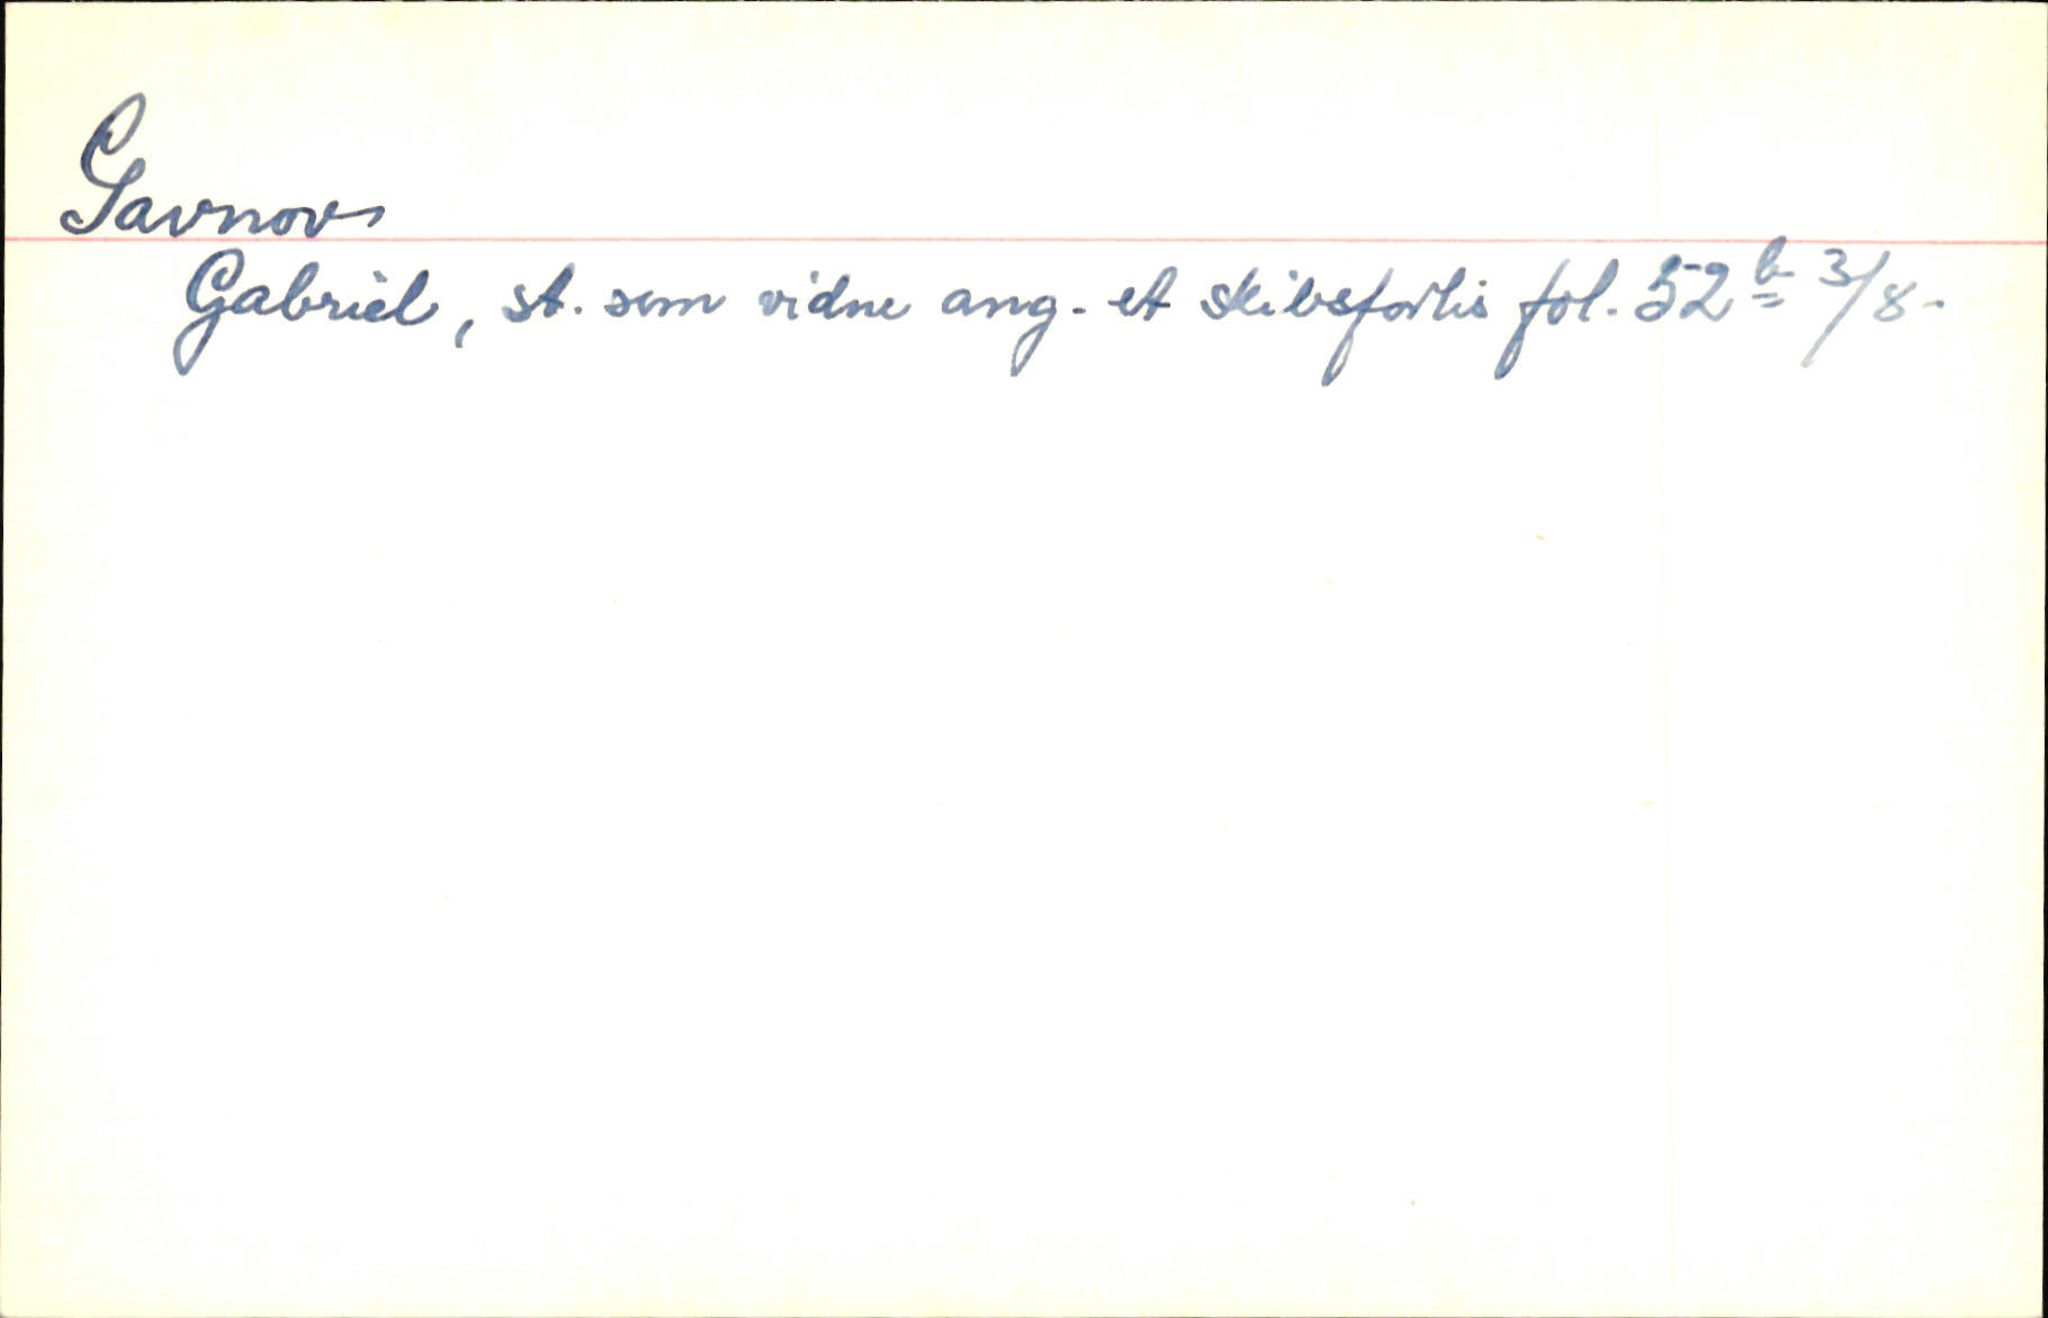 Savnov
Gabriel, st. som vidne ang. et skibsforlis fol. 52 b 3/8.